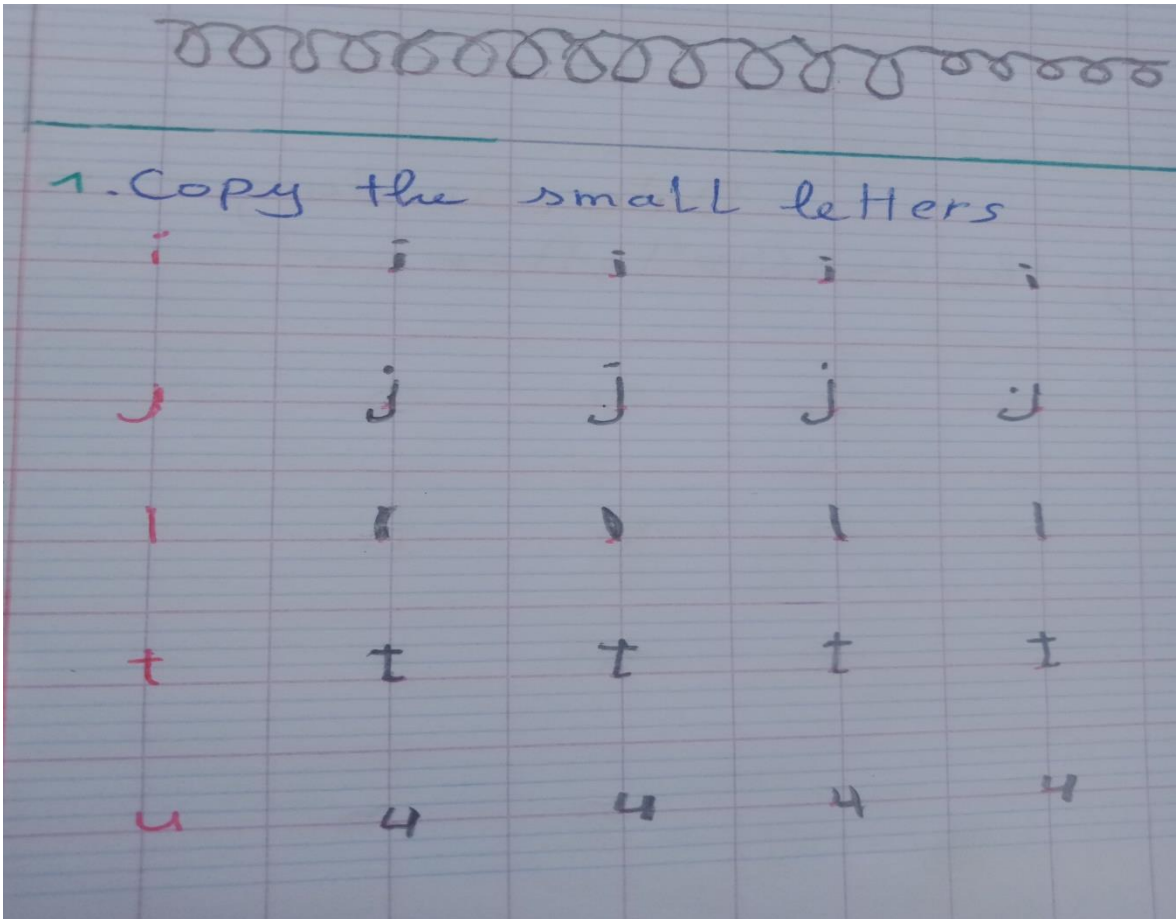 1. Copy the small letters
i i i i i
j j j j j
l l l l l
t t t t t
u u u u u